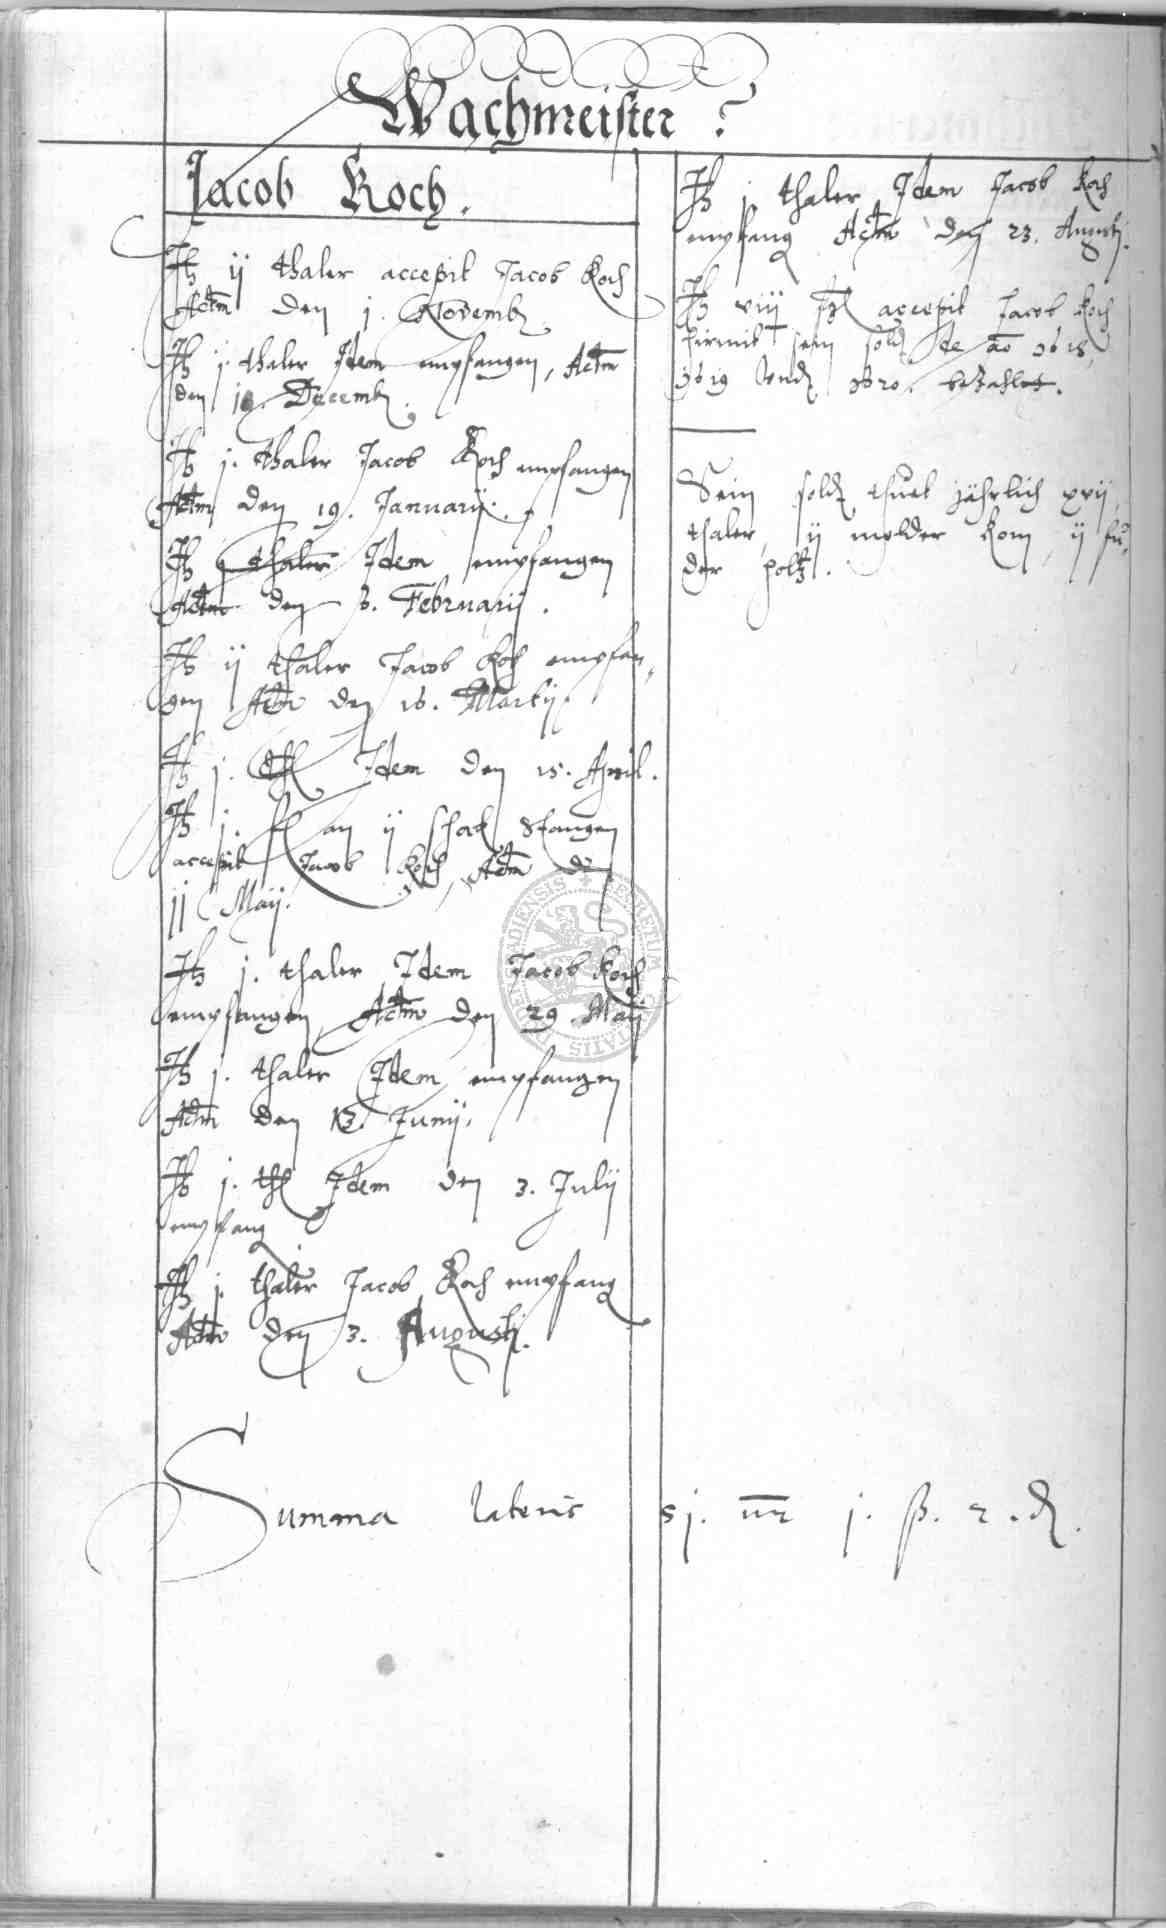 Wachmeister
Jacob Koch.
It̃ ij thaler accepit Jacob Koch
Actm̃ den j. Novemb
It̃ j. thaler Idem empfangen, Actm̃
den Decemb.
It̃ j. thaler Jacob Koch empfangen
Actm̃ den 19. Januarij.
It̃ thaler Idem empfangen
Actm̃ den Februarij.
It̃ ij thaler Jacob Koch empfan,
gen Actm̃ den 16. Martij.
It̃ j. thl Idem den 15. April.
It̃ j. fl an ij schock stangen
accepit Jacob Koch, Actm̃
jj Maij.
It̃ j. thaler Idem Jacob Koch
empfangen, Actm̃ den 29 Maij
It̃ j. thaler Idem empfangen
Actm̃ den 13. Junij.
It̃ j. thl Idem den 3. Julij
empfang
It̃ j. thaler Jacob Koch empfang
Actm̃ den 3. Augustj.
It̃ j. thaler Idem Jacob Koch
empfang Actm̃ den 23. Augustj.
It̃ viij accepit Jacob Koch
hirmit sein sold de ao 1618,
1619 vnd 1620. bezahlet.
Sein sold thuet jährlich xvij
thaler, ij molder korn, ij fu,
der holtz.
Summa lateris sj. mr j. ß. 2. d.
SECRETUM CIVITATIS